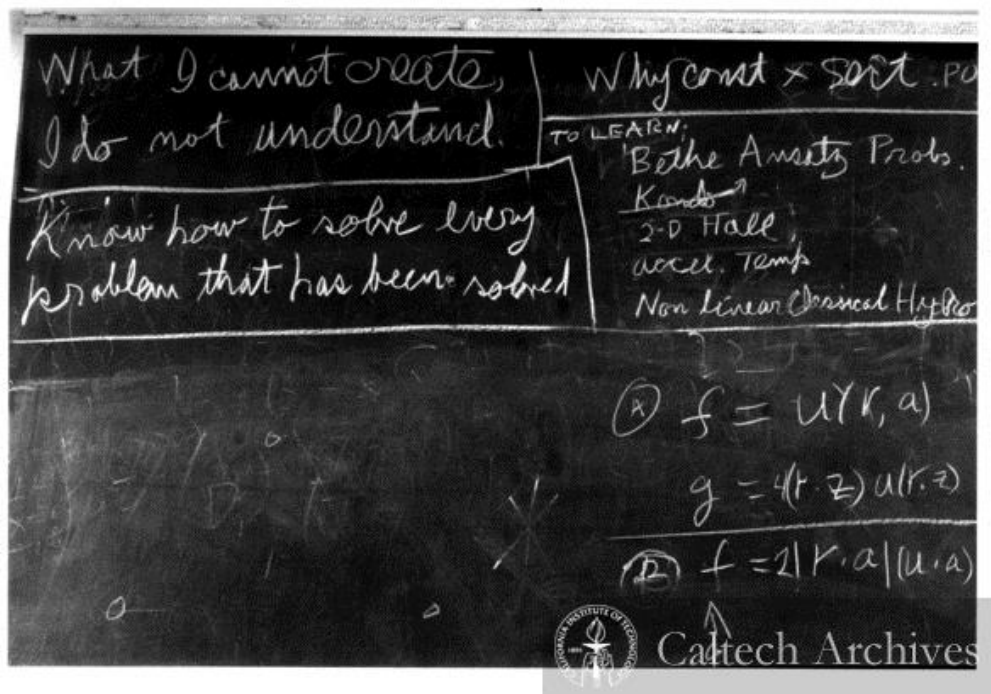 What I cannot create,
I do not understand.
Know how to solve every
problem that has been solved
Why const × sort . PO
TO LEARN:
Bethe Ansatz Probs.
Kondo
2-D Hall
accel. Temp
Non linear Classical Hydro
(A) f = u(r, a)
g = 4(r·z) u(r.z)
(B) f = 2|r·a|(u.a)
CALIFORNIA INSTITUTE OF TECHNOLOGY
1891
Caltech Archives